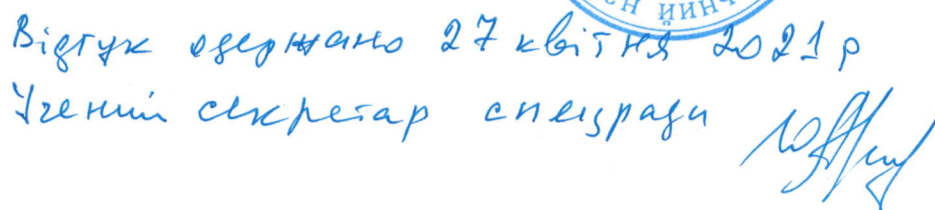 Відгук одержано 27 квітня 2021 р
Учений секретар спецради